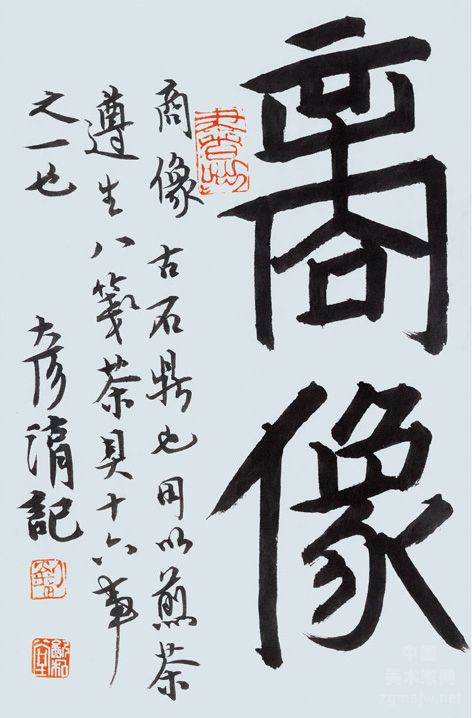 商像
商像 古石鼎也用以煎茶
遵生八箋茶具十六事
之一也
彦湖記
中国
美术家网
zgmsjw.net